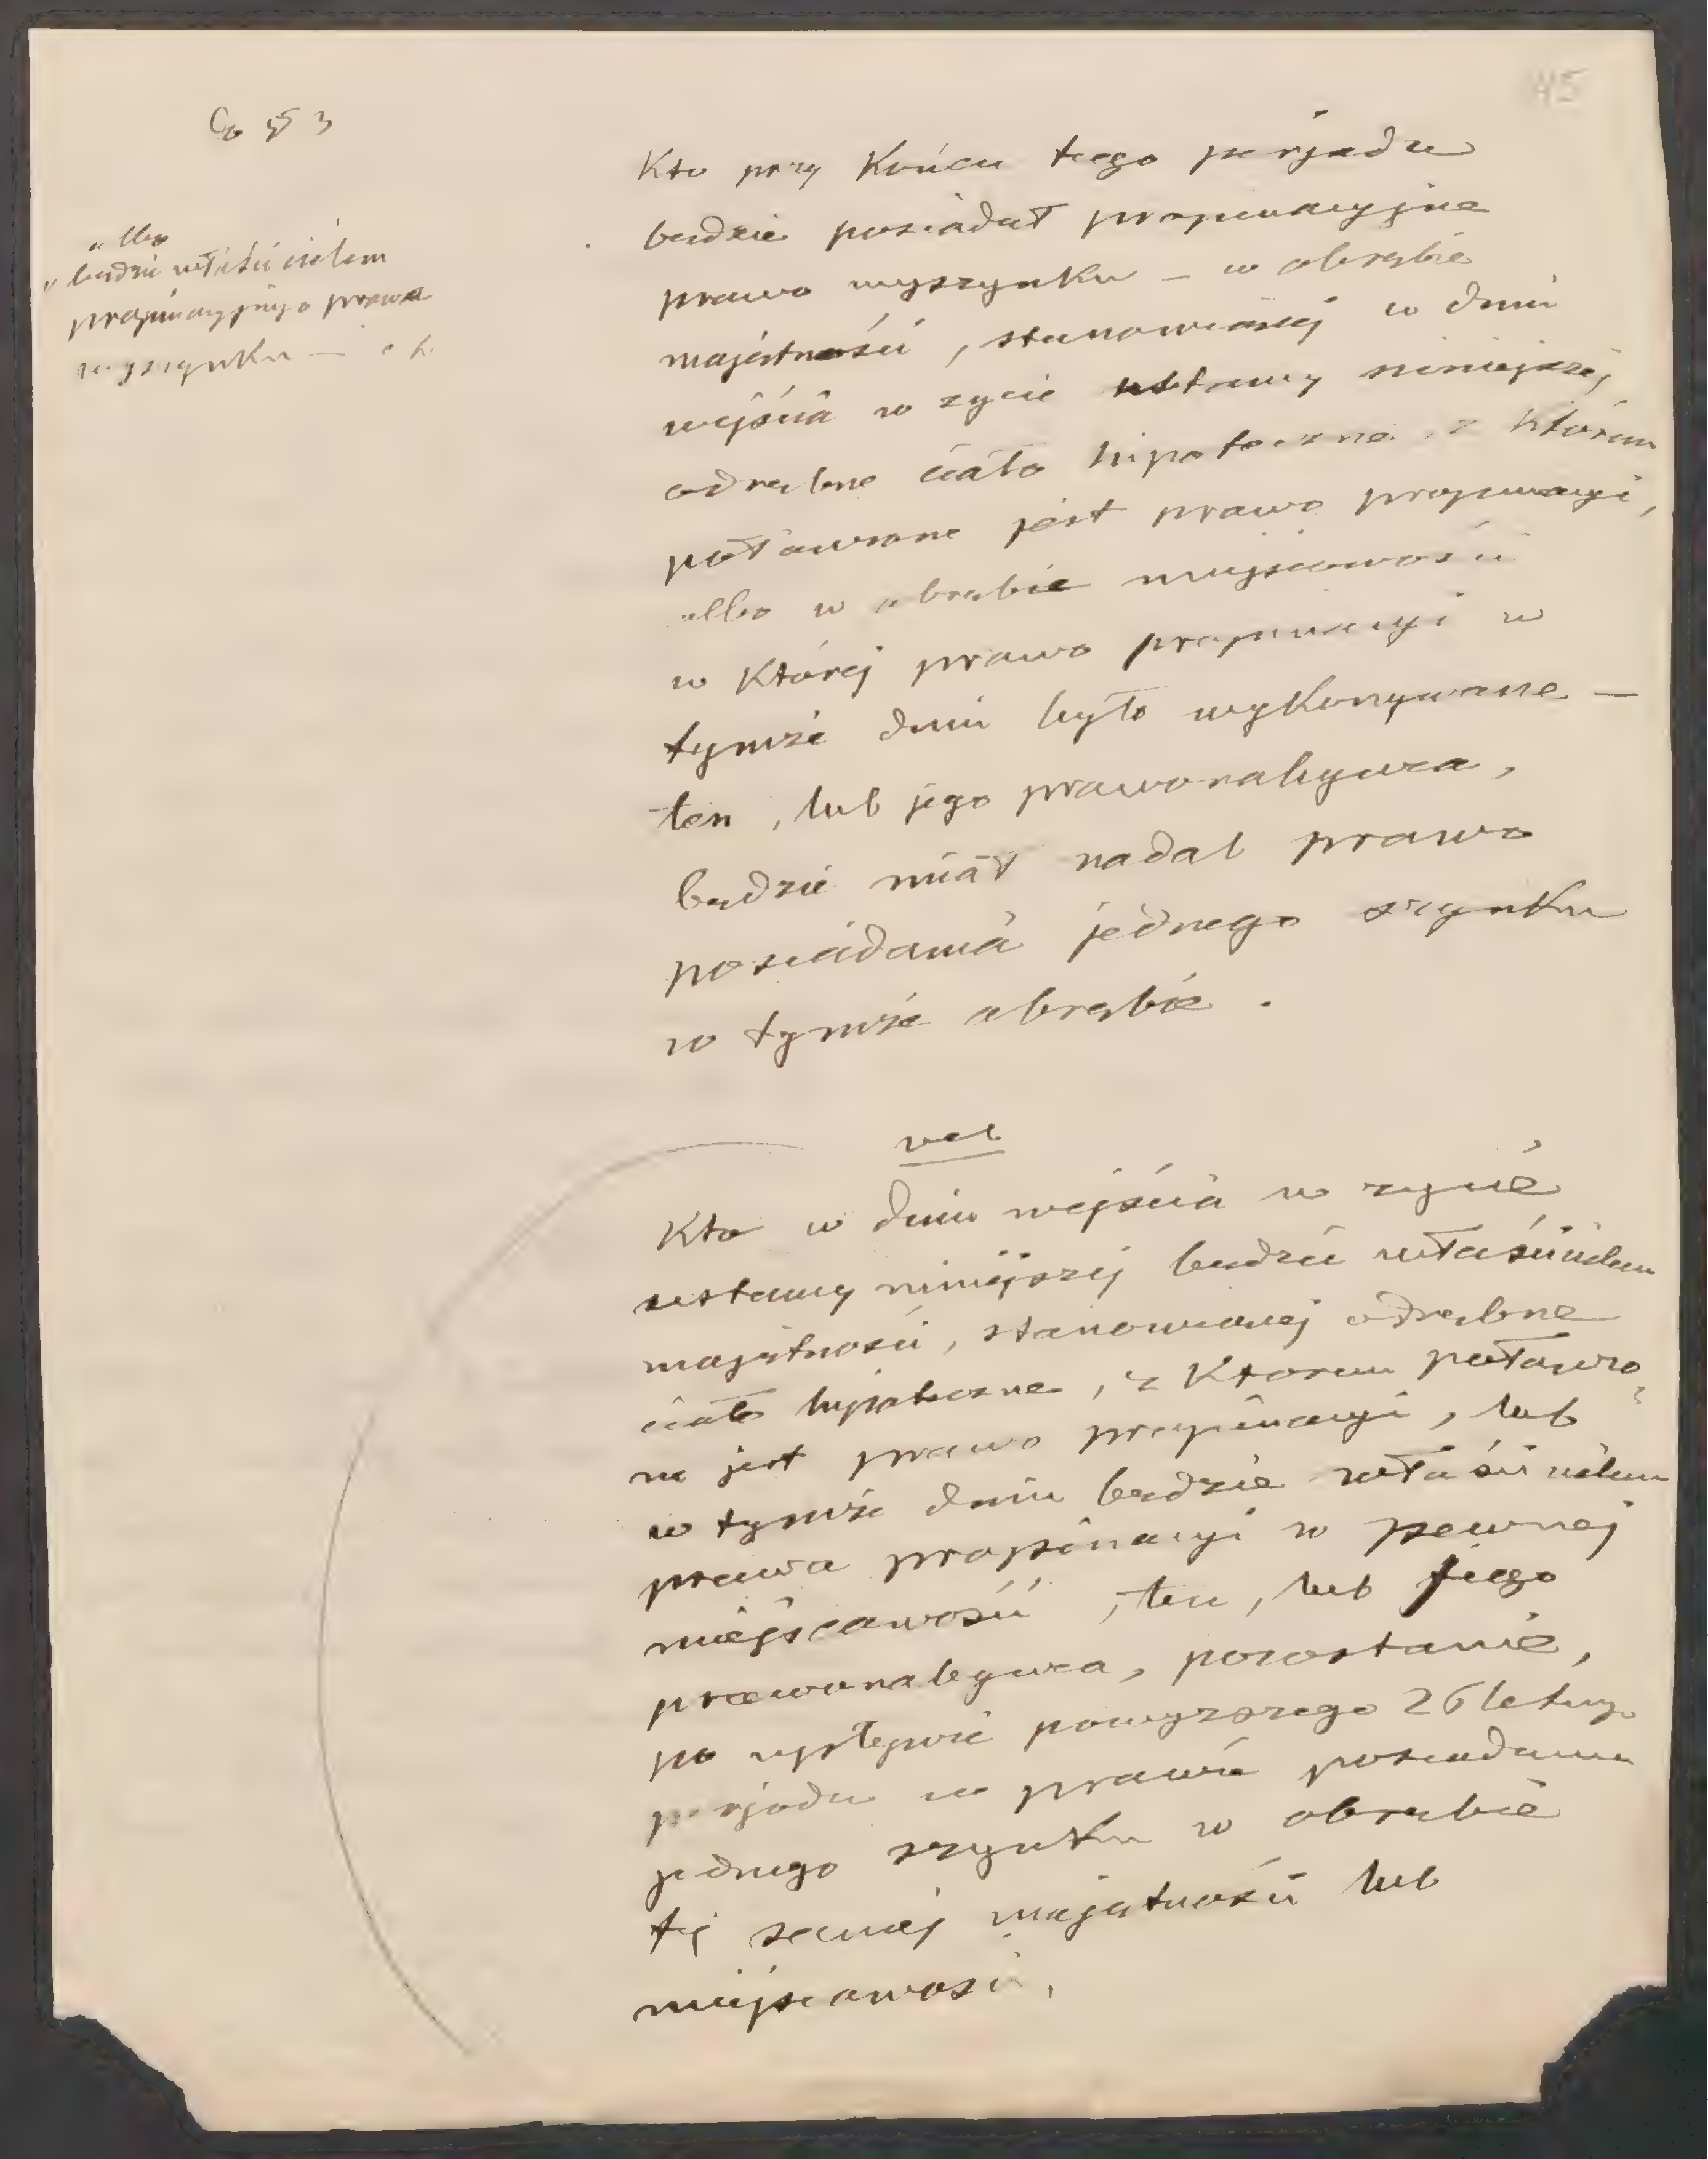 45
Co § 3
„albo
„będzie właścicielem
propinacyjnego prawa
wyszynku —
Kto przy Końcu tego perjodu
będzie posiadał propinacyjne
prawo wyszynku – w obrębie
majętności, stanowiącej w dniu
wejścia w życie ustawy niniejszej
odrębne ciało hipoteczne z którém
połączone jest prawo propinacyi,
albo w obrębie miejscowości
w Której prawo propinacyi w
tymże dniu było wykonywane —
ten, lub jego prawonabywca,
będzie miał nadal prawo
posiadania jednego szynku
w tymże obrębie.
vel
Kto w dniu wejścia w życie
ustawy niniejszej będzie właścicielem
majętności, stanowiącej odrębne
ciało hipoteczne, z Którem połączo
ne jest prawo propinacyi, lub
w tymże dniu będzie właścicielem
prawa propinacyi w pewnej
miejscowości, ten, lub jego
prawonabywca, pozostanie,
po upływie powyższego 26 letniego
perjodu w prawie posiadania
jednego szynku w obrębie
tej samej majętności lub
miejscowości.